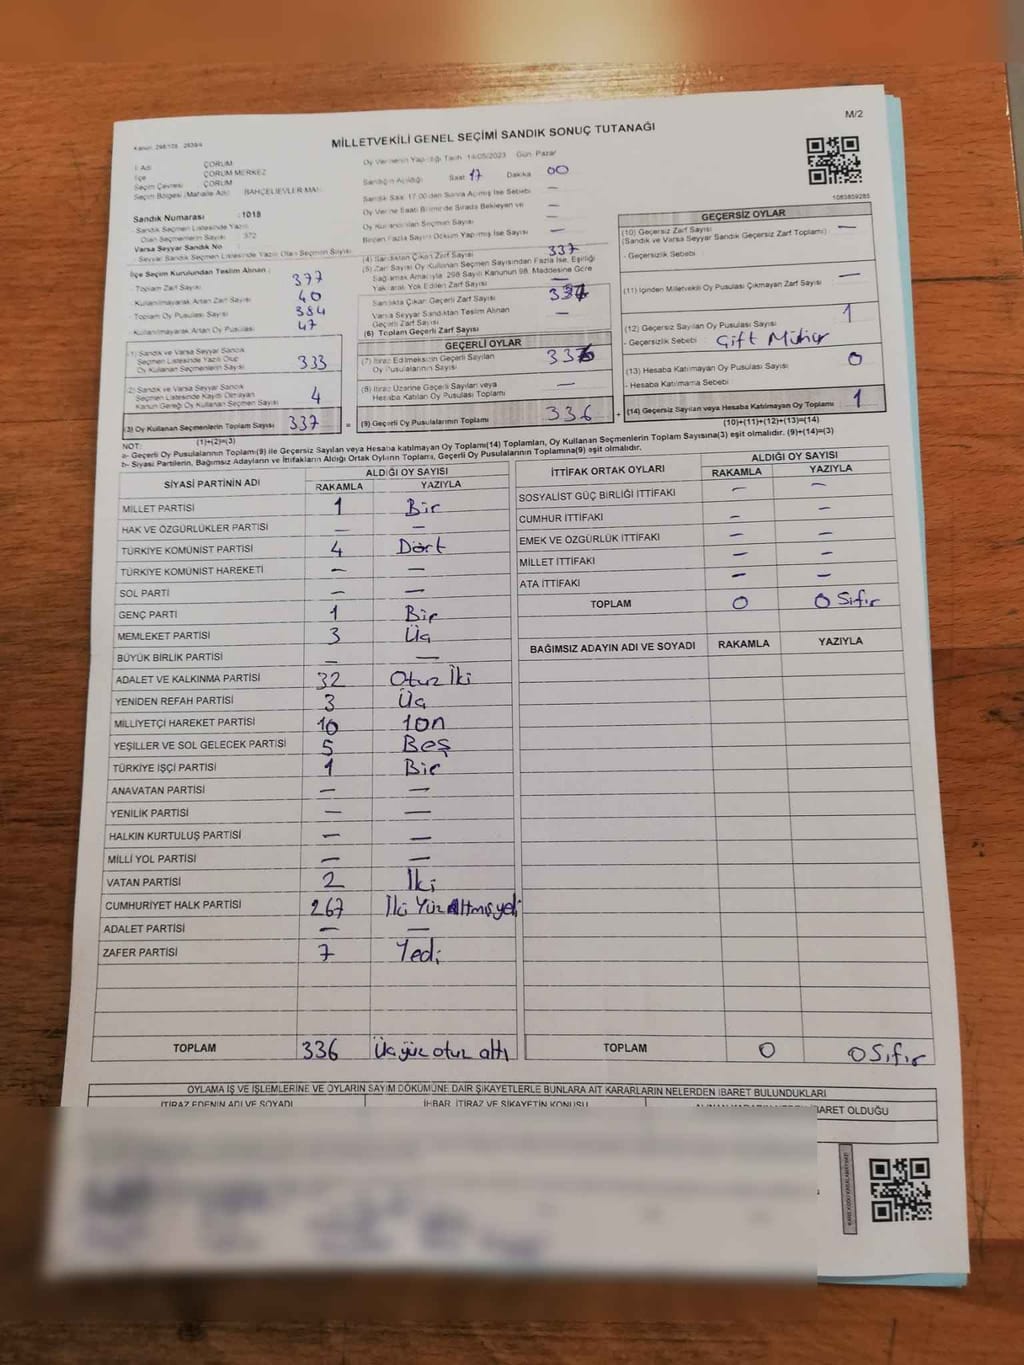 M/2
Kanun: 298/105 - 2839/4
MİLLETVEKİLİ GENEL SEÇİMİ SANDIK SONUÇ TUTANAĞI
İl Adı : ÇORUM
İlçe : ÇORUM MERKEZ
Seçim Çevresi : ÇORUM
Seçim Bölgesi (Mahalle Adı) : BAHÇELİEVLER MAH.
Sandık Numarası : 1018
Sandık Seçmen Listesinde Yazılı
Olan Seçmenlerin Sayısı : 372
Varsa Seyyar Sandık No :
Seyyar Sandık Seçmen Listesinde Yazılı Olan Seçmen Sayısı
İlçe Seçim Kurulundan Teslim Alınan :
Toplam Zarf Sayısı 377
Kullanılmayarak Artan Zarf Sayısı 40
Toplam Oy Pusulası Sayısı 384
Kullanılmayarak Artan Oy Pusulası 47
(1) Sandık ve Varsa Seyyar Sandık
Seçmen Listesinde Yazılı Olup
Oy Kullanan Seçmenlerin Sayısı 333
(2) Sandık ve Varsa Seyyar Sandık
Seçmen Listesinde Kaydı Olmayan
Kanun Gereği Oy Kullanan Seçmen Sayısı 4
(3) Oy Kullanan Seçmenlerin Toplam Sayısı 337 =
(1)+(2)=(3)
Oy Vermenin Yapıldığı Tarih 14/05/2023 Gün: Pazar
Sandığın Açıldığı Saat 17 Dakika 00
Sandık Saat 17:00'den Sonra Açılmış İse Sebebi —
Oy Verme Saati Bitiminde Sırada Bekleyen ve
Oy Kullandırılan Seçmen Sayısı —
Birden Fazla Sayım Döküm Yapılmış İse Sayısı —
(4) Sandıktan Çıkan Zarf Sayısı 337
(5) Zarf Sayısı Oy Kullanan Seçmen Sayısından Fazla İse, Eşitliği
Sağlamak Amacıyla, 298 Sayılı Kanunun 98. Maddesine Göre
Yakılarak Yok Edilen Zarf Sayısı —
Sandıkta Çıkan Geçerli Zarf Sayısı 337
Varsa Seyyar Sandıktan Teslim Alınan
Geçerli Zarf Sayısı —
(6) Toplam Geçerli Zarf Sayısı
GEÇERLİ OYLAR
(7) İtiraz Edilmeksizin Geçerli Sayılan
Oy Pusulasının Sayısı 336
(8) İtiraz Üzerine Geçerli Sayılan veya
Hesaba Katılan Oy Pusulası Toplamı —
(9) Geçerli Oy Pusulalarının Toplamı 336 +
1083859285
GEÇERSİZ OYLAR
(10) Geçersiz Zarf Sayısı —
(Sandık ve Varsa Seyyar Sandık Geçersiz Zarf Toplamı)
- Geçersizlik Sebebi
(11) İçinden Milletvekili Oy Pusulası Çıkmayan Zarf Sayısı —
(12) Geçersiz Sayılan Oy Pusulası Sayısı 1
- Geçersizlik Sebebi Çift Mühür
(13) Hesaba Katılmayan Oy Pusulası Sayısı 0
- Hesaba Katılmama Sebebi
(14) Geçersiz Sayılan veya Hesaba Katılmayan Oy Toplamı 1
(10)+(11)+(12)+(13)=(14)
NOT:
a- Geçerli Oy Pusulalarının Toplamı(9) ile Geçersiz Sayılan veya Hesaba Katılmayan Oy Toplamı(14) Toplamları, Oy Kullanan Seçmenlerin Toplam Sayısına(3) eşit olmalıdır. (9)+(14)=(3)
b- Siyasi Partilerin, Bağımsız Adayların ve İttifakların Aldığı Ortak Oyların Toplamı, Geçerli Oy Pusulalarının Toplamına(9) eşit olmalıdır.
SİYASİ PARTİNİN ADI ALDIĞI OY SAYISI
RAKAMLA YAZIYLA
MİLLET PARTİSİ 1 Bir
HAK VE ÖZGÜRLÜKLER PARTİSİ — —
TÜRKİYE KOMÜNİST PARTİSİ 4 Dört
TÜRKİYE KOMÜNİST HAREKETİ — —
SOL PARTİ — —
GENÇ PARTİ 1 Bir
MEMLEKET PARTİSİ 3 Üç
BÜYÜK BİRLİK PARTİSİ — —
ADALET VE KALKINMA PARTİSİ 32 Otuz İki
YENİDEN REFAH PARTİSİ 3 Üç
MİLLİYETÇİ HAREKET PARTİSİ 10 1on
YEŞİLLER VE SOL GELECEK PARTİSİ 5 Beş
TÜRKİYE İŞÇİ PARTİSİ 1 Bir
ANAVATAN PARTİSİ — —
YENİLİK PARTİSİ — —
HALKIN KURTULUŞ PARTİSİ — —
MİLLİ YOL PARTİSİ — —
VATAN PARTİSİ 2 İki
CUMHURİYET HALK PARTİSİ 267 İki Yüz Altmış yedi
ADALET PARTİSİ — —
ZAFER PARTİSİ 7 Yedi
TOPLAM 336 Üç yüz otuz altı
İTTİFAK ORTAK OYLARI ALDIĞI OY SAYISI
RAKAMLA YAZIYLA
SOSYALİST GÜÇ BİRLİĞİ İTTİFAKI — —
CUMHUR İTTİFAKI — —
EMEK VE ÖZGÜRLÜK İTTİFAKI — —
MİLLET İTTİFAKI — —
ATA İTTİFAKI — —
TOPLAM 0 0 Sıfır
BAĞIMSIZ ADAYIN ADI VE SOYADI RAKAMLA YAZIYLA
TOPLAM 0 0 Sıfır
OYLAMA İŞ VE İŞLEMLERİNE VE OYLARIN SAYIM DÖKÜMÜNE DAİR ŞİKAYETLERLE BUNLARA AİT KARARLARIN NELERDEN İBARET BULUNDUKLARI
İTİRAZ EDENİN ADI VE SOYADI İHBAR, İTİRAZ VE ŞİKAYETİN KONUSU İBARET OLDUĞU